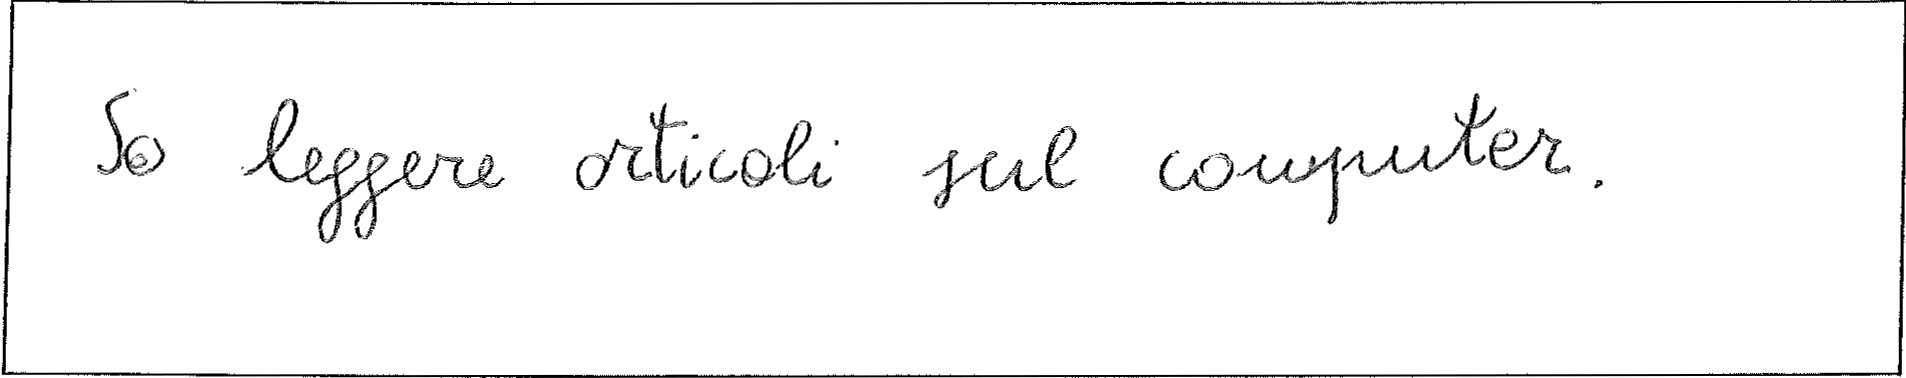 So leggere articoli sul computer.